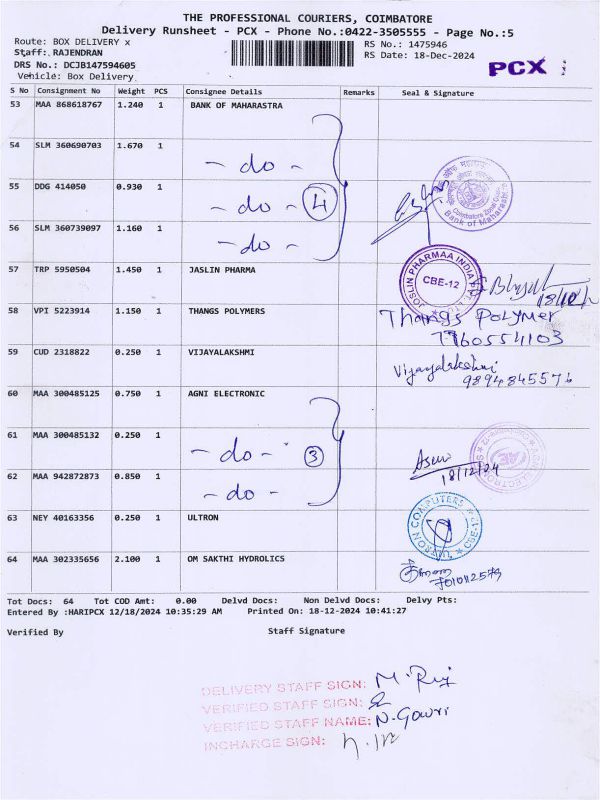 THE PROFESSIONAL COURIERS, COIMBATORE
Delivery Runsheet - PCX - Phone No.:0422-3505555 - Page No.:5
Route: BOX DELIVERY x
RS No.: 1475946
Staff: RAJENDRAN
RS Date: 18-Dec-2024
DRS No.: DCJB147594605
PCX
Vehicle: Box Delivery
S No Consignment No Weight PCS Consignee Details Remarks Seal & Signature
53 MAA 868618767 1.240 1 BANK OF MAHARASTRA
54 SLM 360690703 1.670 1 - do -
55 DDG 414050 0.930 1 - do - 4
Coimbatore Zonal Office
Bank of Maharashtra
56 SLM 360739097 1.160 1 - do -
57 TRP 5950504 1.450 1 JASLIN PHARMA
JOSLIN PHARMAA INDIA PVT. LTD.
CBE-12
58 VPI 5223914 1.150 1 THANGS POLYMERS Thangs Polymer
7760554103
59 CUD 2318822 0.250 1 VIJAYALAKSHMI Vijayalakshmi
9894845576
60 MAA 300485125 0.750 1 AGNI ELECTRONIC
61 MAA 300485132 0.250 1 - do - 3
18/12/24
62 MAA 942872873 0.850 1 - do -
63 NEY 40163356 0.250 1 ULTRON
COMPUTERS
64 MAA 302335656 2.100 1 OM SAKTHI HYDROLICS
Tot Docs: 64 Tot COD Amt: 0.00 Delvd Docs: Non Delvd Docs: Delvy Pts:
Entered By :HARIPCX 12/18/2024 10:35:29 AM Printed On: 18-12-2024 10:41:27
Verified By Staff Signature
DELIVERY STAFF SIGN:
VERIFIED STAFF SIGN:
VERIFIED STAFF NAME: N. Gowri
INCHARGE SIGN: